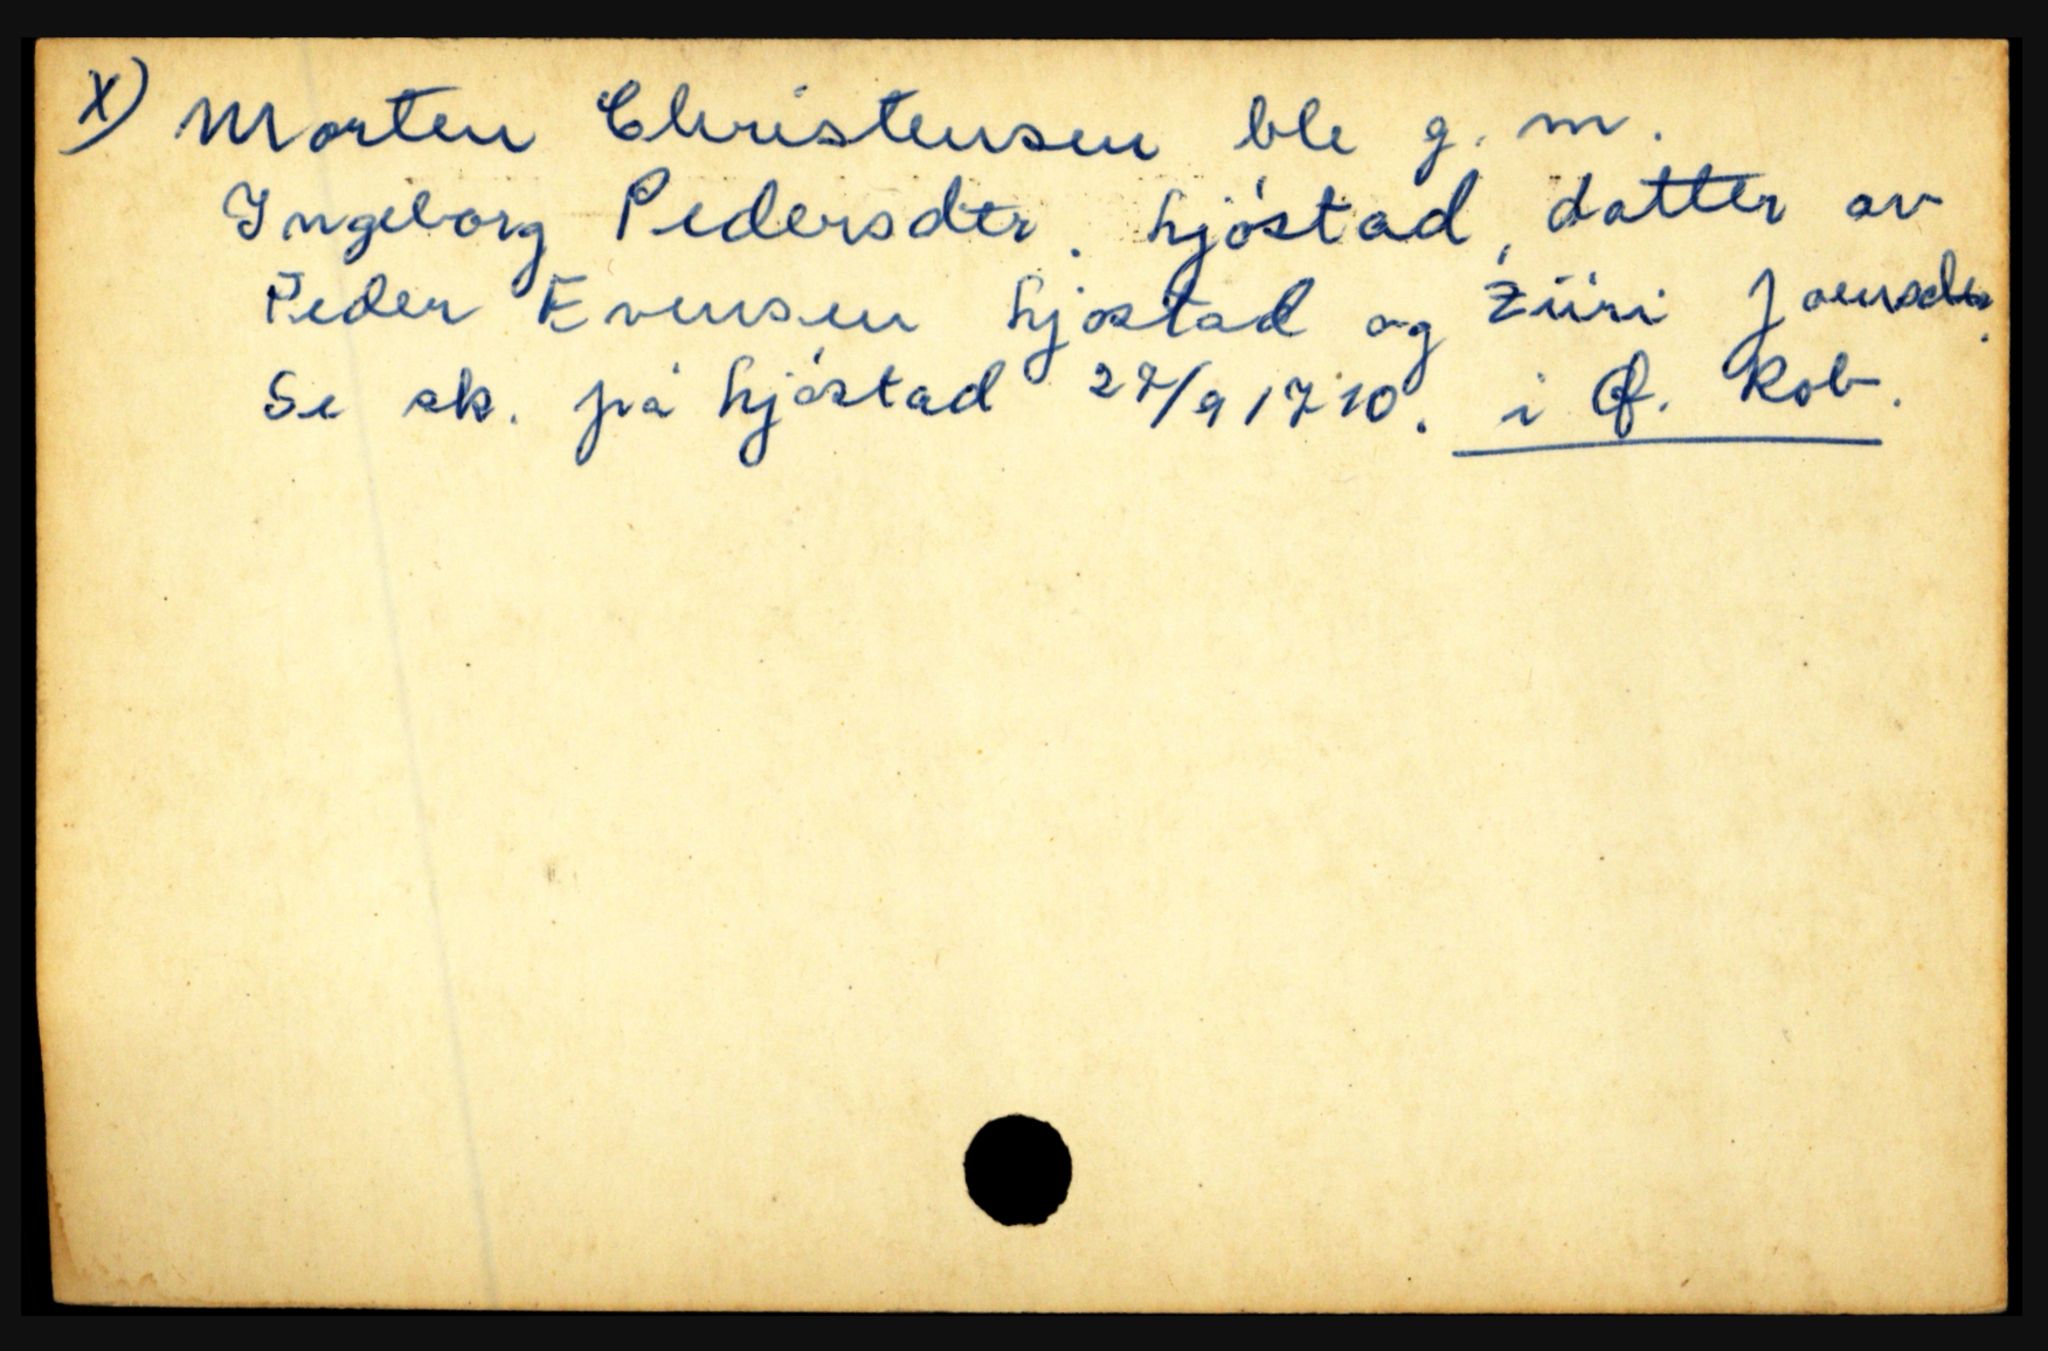 x) Morten Christensen ble g. m.
Ingeborg Pedersdtr. hjøstad, datter av
Peder Evensen hjøstad og Ziiri Joensdtr.
Se sk. på hjøstad 27/9 1710. i Q. Rob.